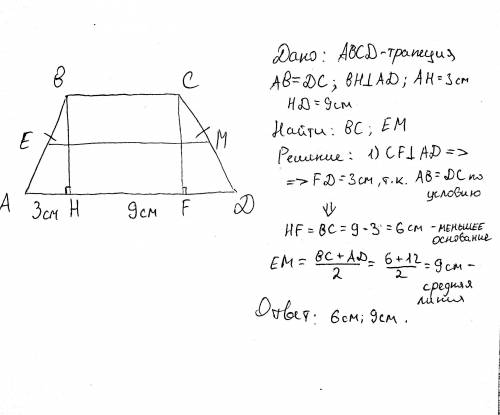 B C
E M
A 3см H 9см F D
Дано: ABCD-трапеция,
AB=DC; BH⊥AD; AH=3см
HD=9см
Найти: BC; EM
Решение: 1) CF⊥AD =>
=> FD=3см, т.к. AB=DC по
условию
⇓
HF=BC=9-3=6см - меньшее
основание
EM = BC+AD/2 = 6+12/2 = 9см -
средняя
линия
Ответ: 6см; 9см.